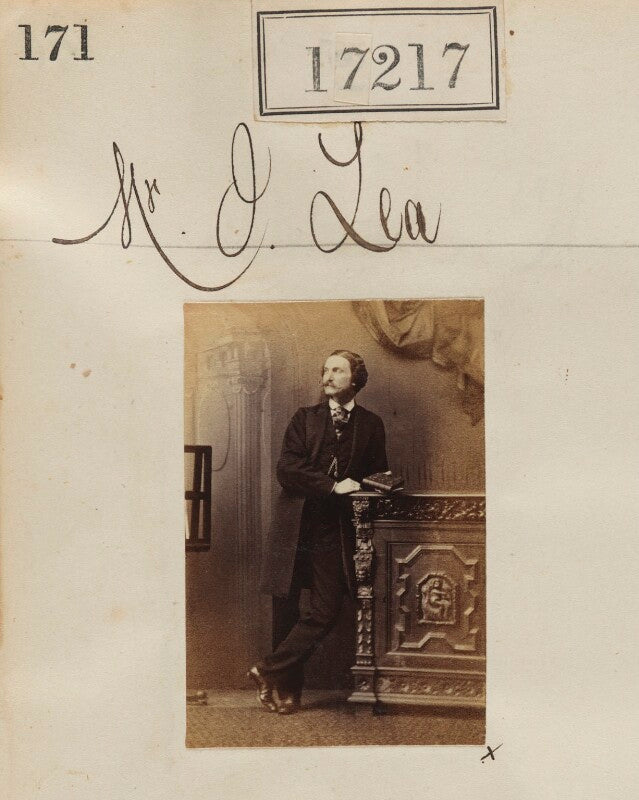 171
17217
Mr. J. Lea
x